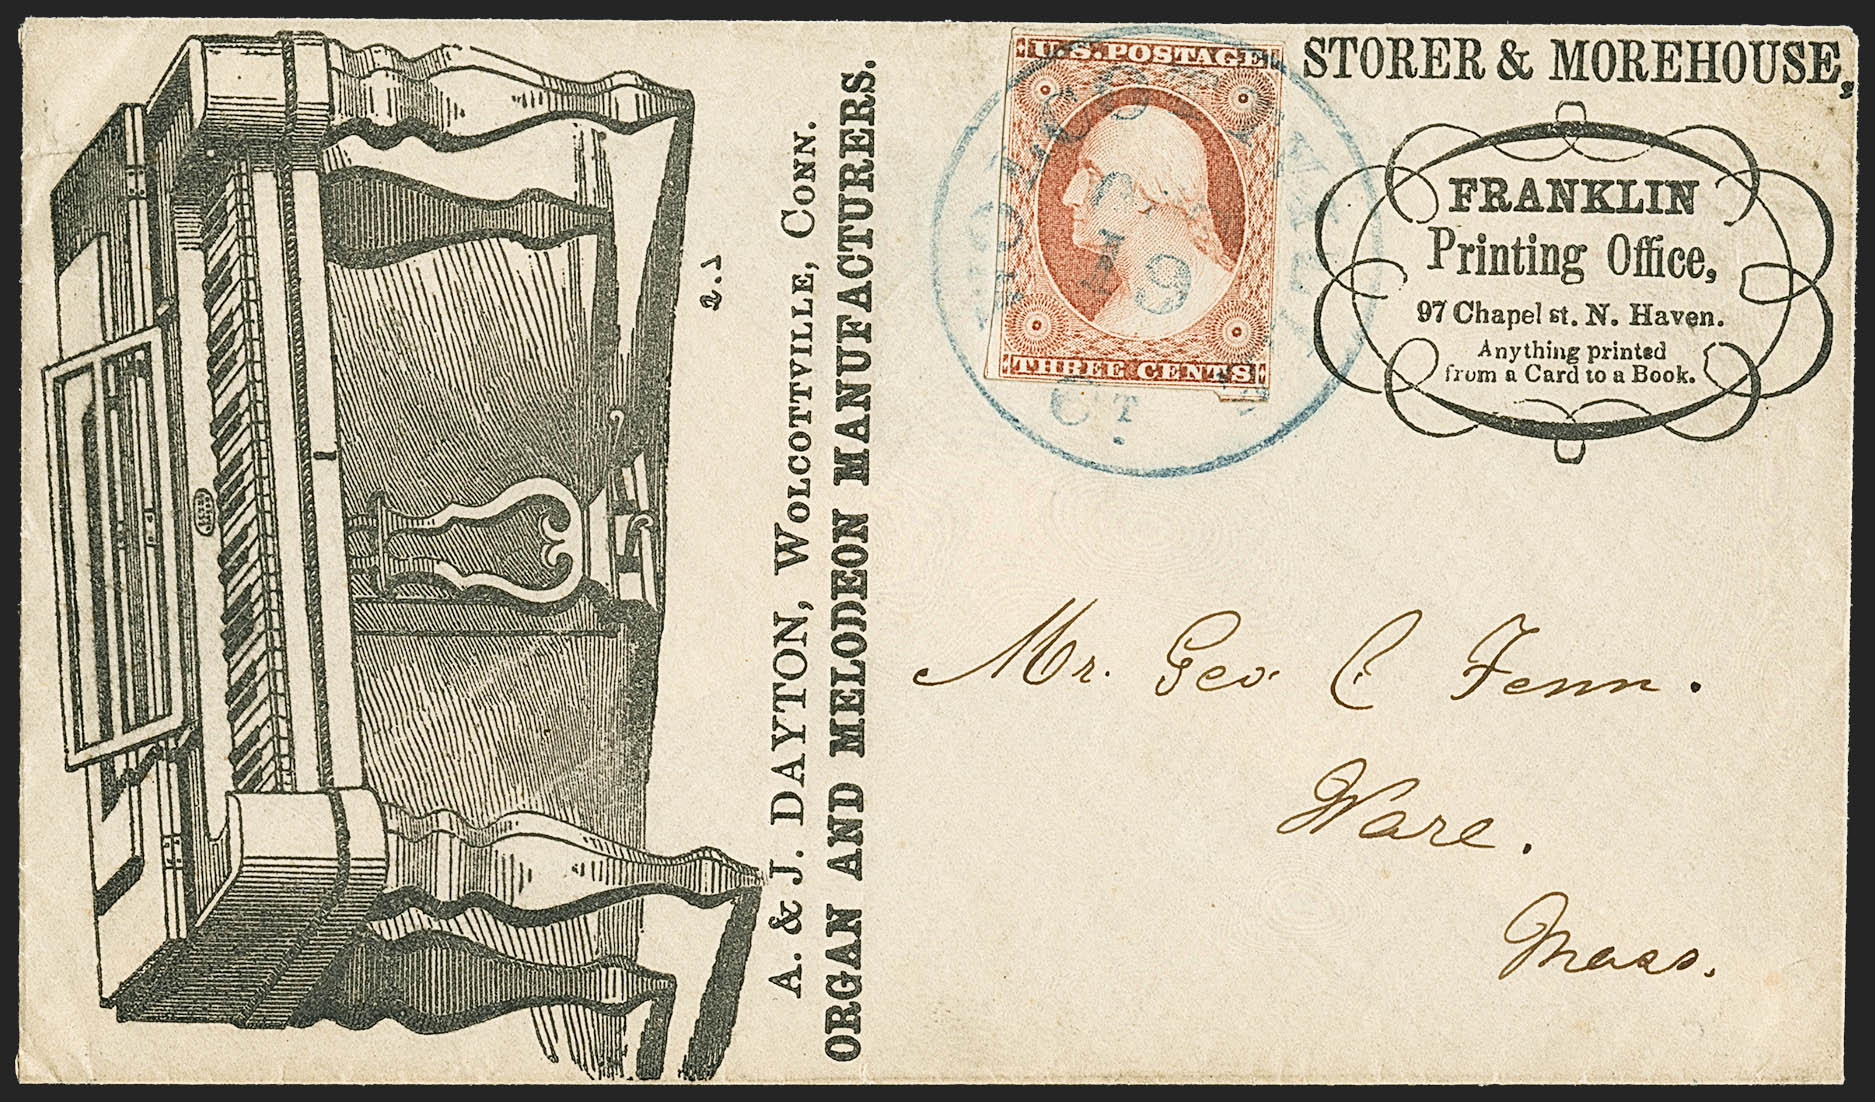 A. & J. DAYTON, WOLCOTTVILLE, CONN.
ORGAN AND MELODEON MANUFACTURERS.
U.S. POSTAGE
THREE CENTS
WOLCOTTVILLE
19
CT.
STORER & MOREHOUSE,
FRANKLIN
Printing Office,
97 Chapel st. N. Haven.
Anything printed
from a Card to a Book.
Mr. Geo. C Fenn.
Ware.
Mass.